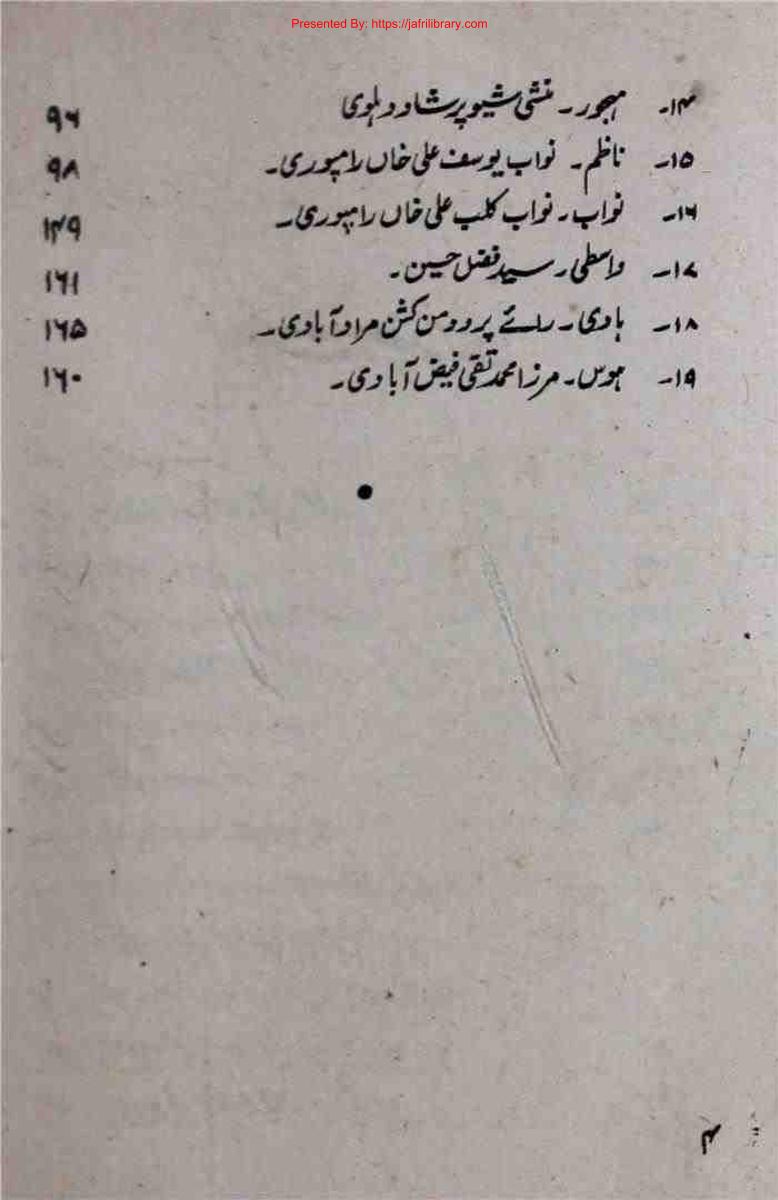 Presented By: https://jafrilibrary.com
۱۴۔ مہجور۔ منشی شیو پرشاد دہلوی ۹۶
۱۵۔ ناظم۔ نواب یوسف علی خاں رامپوری۔ ۹۸
۱۶۔ نواب۔ نواب کلب علی خاں رامپوری۔ ۱۴۹
۱۷۔ واسطی۔ سید فضل حسین۔ ۱۶۱
۱۸۔ ہادی۔ رائے پردومن کشن مرادآبادی۔ ۱۶۵
۱۹۔ ہوس۔ مرزا محمد تقی فیض آبادی۔ ۱۶۰
۴